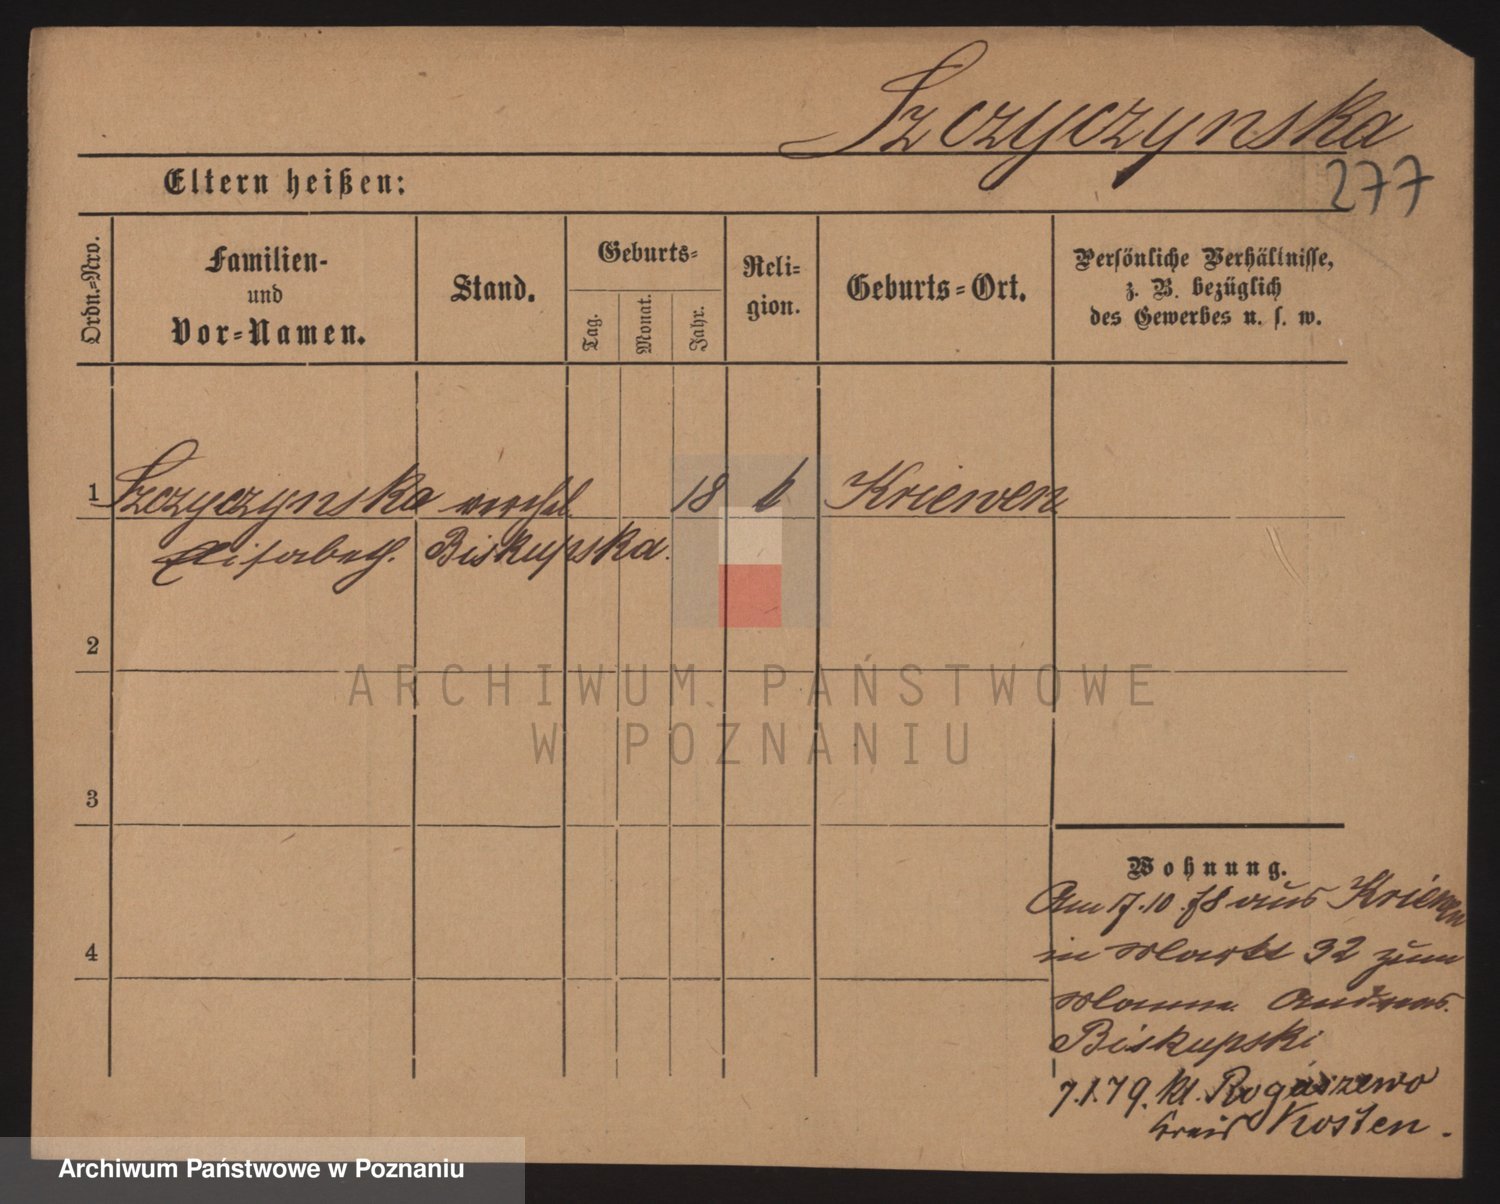 Szczyczynska
277
Eltern heißen:
Ordn.-Nro.
Familien-
und
Vor-Namen.
Stand.
Geburts-
Tag.
Monat.
Jahr.
Reli-
gion.
Geburts-Ort.
Persönliche Verhältnisse,
z. B. bezüglich
des Gewerbes u. s. w.
1 Szczyczynska verehel. 18 k Kriewen
Elisabeth. Biskupska.
2
3
4
ARCHIWUM PAŃSTWOWE
W POZNANIU
Wohnung.
Am 17.10.78 aus Kriewen
in Markt 32 zum
Manne Andreas.
Biskupski
7.1.79. Kl. Rogaszewo
Kreis Kosten.
Archiwum Państwowe w Poznaniu